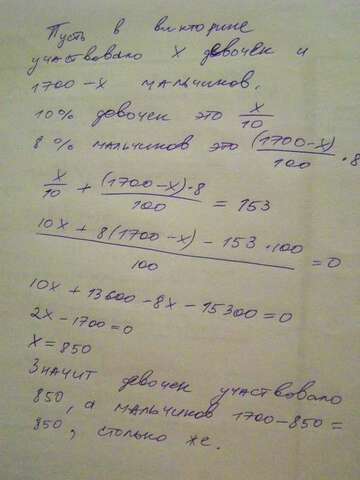 Пусть в викторине
участвовало x девочек и
1700-x мальчиков.
10% девочек это x/10
8% мальчиков это (1700-x)/100 · 8
x/10 + (1700-x)·8/100 = 153
(10x + 8(1700-x) - 153·100)/100 = 0
10x + 13600 - 8x - 15300 = 0
2x - 1700 = 0
x = 850
Значит девочек участвовало
850, а мальчиков 1700-850=
850, столько же.